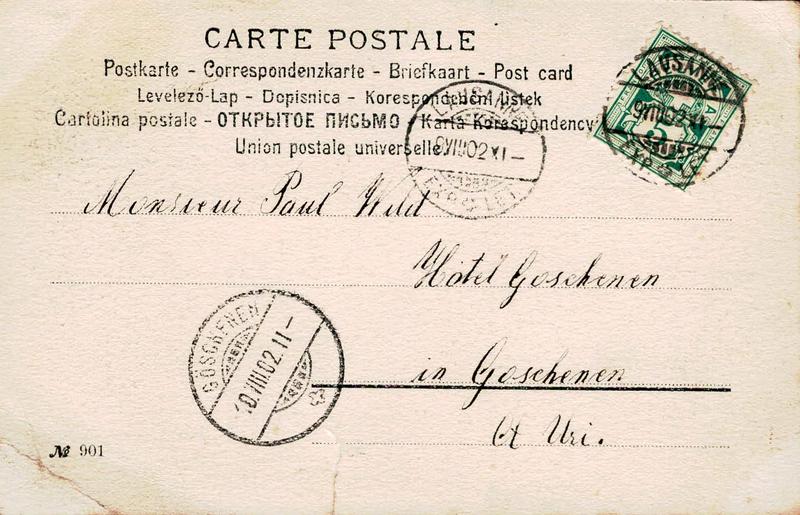 CARTE POSTALE
Postkarte - Correspondenzkarte - Briefkaart - Post card
Levelező-Lap - Dopisnica - Korespondenční lístek
Cartolina postale - ОТКРЫТОЕ ПИСЬМО - Karta Korespondency
Union postale universelle
LAUSANNE
9.VIII.02.XI-
EXP. LET.
LAUSANNE
9.VIII.02.XI
EXP. LET.
5
Monsieur Paul Wildt
Hôtel Goschenen
GÖSCHENEN
10.VIII.02.11-
in Goschenen
Ct Uri.
№ 901